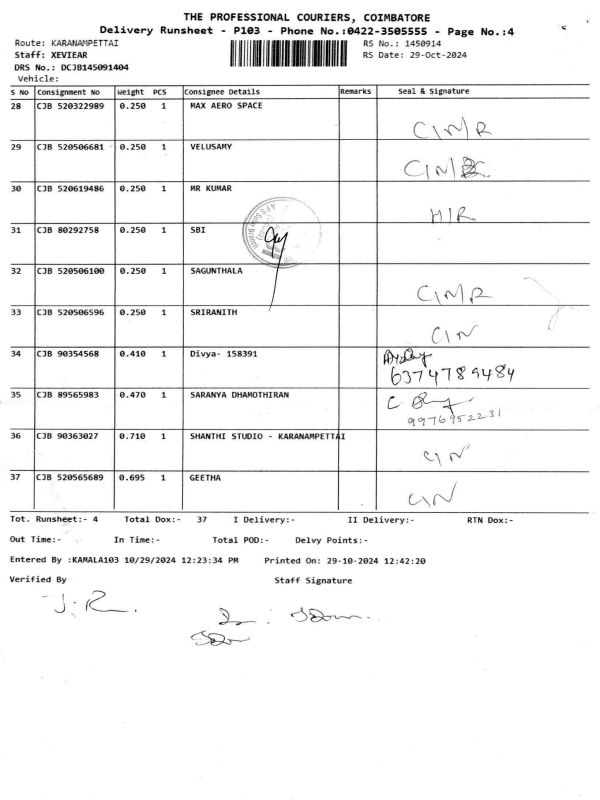 THE PROFESSIONAL COURIERS, COIMBATORE
Delivery Runsheet - P103 - Phone No.:0422-3505555 - Page No.:4
Route: KARANAMPETTAI RS No.: 1450914
Staff: XEVIEAR RS Date: 29-Oct-2024
DRS No.: DCJB145091404
Vehicle:
S No Consignment No Weight PCS Consignee Details Remarks Seal & Signature
28 CJB 520322989 0.250 1 MAX AERO SPACE C/N/R
29 CJB 520506681 0.250 1 VELUSAMY C/N/
30 CJB 520619486 0.250 1 MR KUMAR H/R
31 CJB 80292758 0.250 1 SBI
32 CJB 520506100 0.250 1 SAGUNTHALA C/N/R
33 CJB 520506596 0.250 1 SRIRANITH C/N
34 CJB 90354568 0.410 1 Divya- 158391
6374789484
35 CJB 89565983 0.470 1 SARANYA DHAMOTHIRAN C
9976952231
36 CJB 90363027 0.710 1 SHANTHI STUDIO - KARANAMPETTAI C/N
37 CJB 520565689 0.695 1 GEETHA C/N
Tot. Runsheet:- 4 Total Dox:- 37 I Delivery:- II Delivery:- RTN Dox:-
Out Time:- In Time:- Total POD:- Delvy Points:-
Entered By :KAMALA103 10/29/2024 12:23:34 PM Printed On: 29-10-2024 12:42:20
Verified By Staff Signature